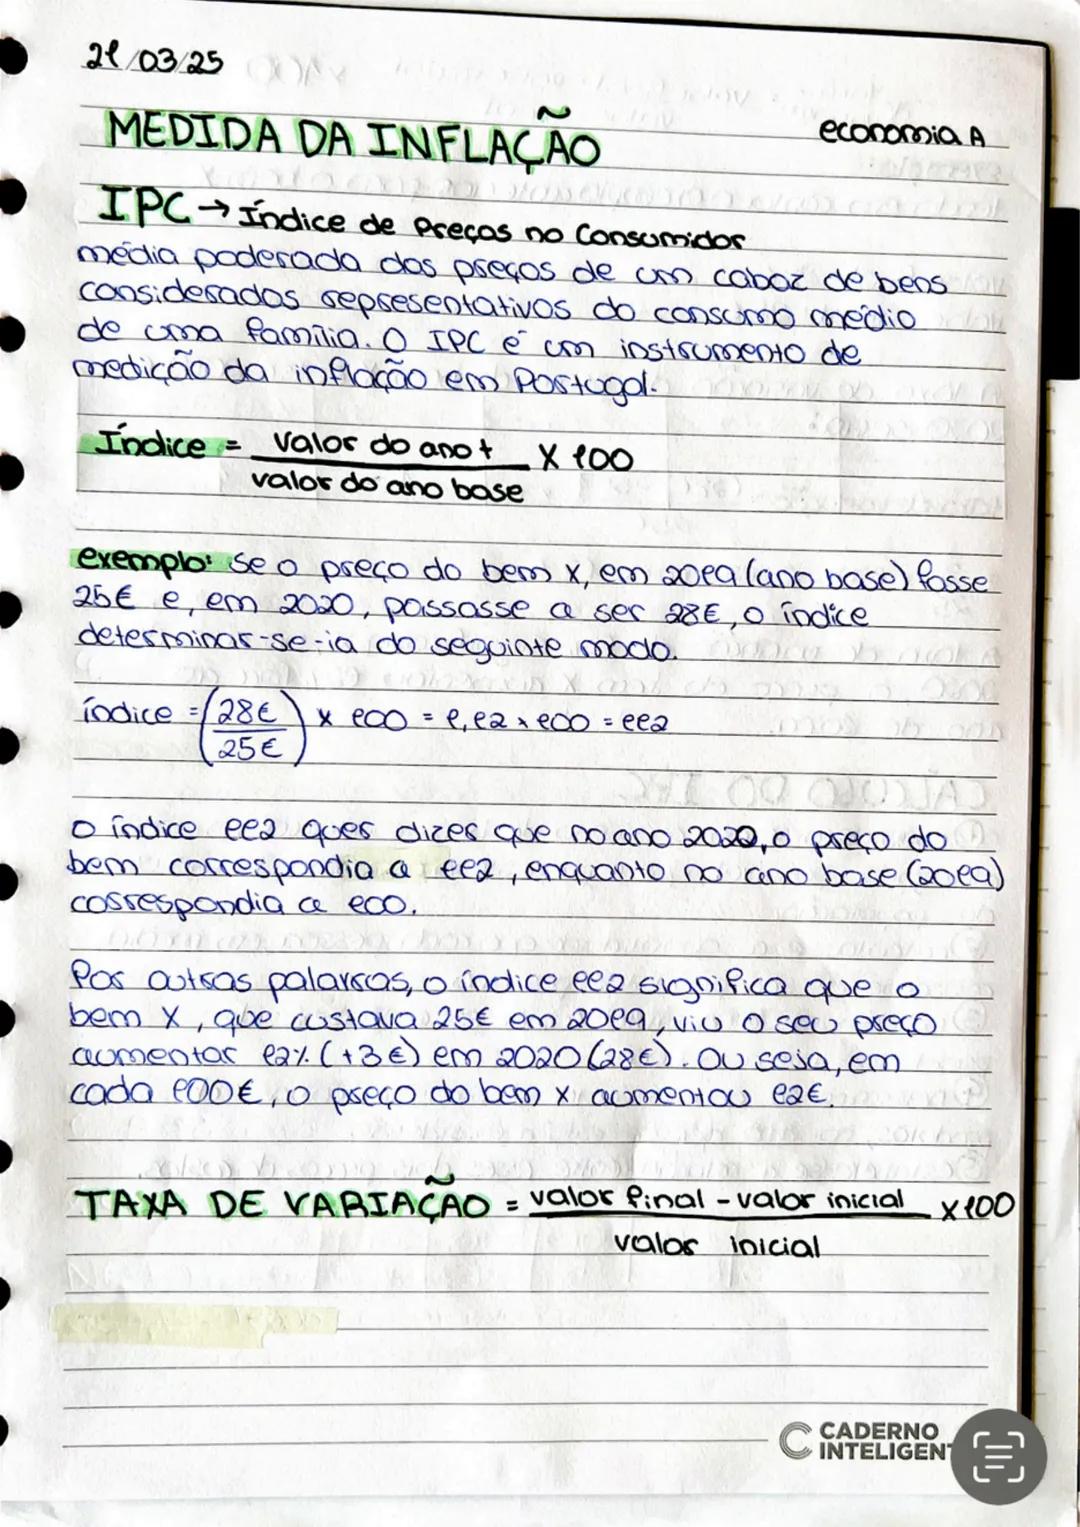 21/03/25
MEDIDA DA INFLAÇÃO
economia A
IPC → Índice de Preços no Consumidor
média poderada dos preços de um cabaz de bens
considerados representativos do consumo médio
de uma família. O IPC é um instrumento de
medição da inflação em Portugal.
Índice = valor do ano t x 100
valor do ano base
exemplo: se o preço do bem x, em 2019 (ano base) fosse
25€ e, em 2020, passasse a ser 28€, o índice
determinar-se-ia do seguinte modo.
índice = (28€ / 25€) x 100 = 1,12 x 100 = 112
O índice 112 quer dizer que no ano 2020, o preço do
bem correspondia a 112, enquanto no ano base (2019)
correspondia a 100.
Por outras palavras, o índice 112 significa que o
bem X, que custava 25€ em 2019, viu o seu preço
aumentar 12% (+3€) em 2020 (28€). Ou seja, em
cada 100€, o preço do bem x aumentou 12€.
TAXA DE VARIAÇÃO = valor final - valor inicial x100
valor inicial
CADERNO
INTELIGENT